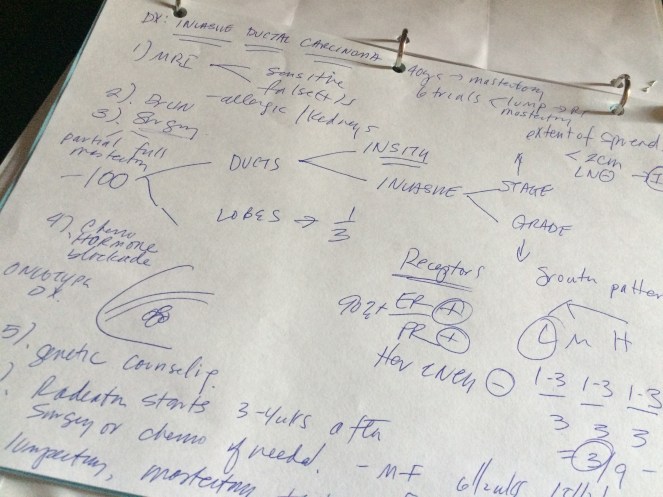 DX: INVASIVE DUCTAL CARCINOMA
1) MRI
sensitive
false(+)s
40 yrs → mastectomy
6 trials < lump → RT
mastectomy
2) BUN - allergic / Kidneys
3) Surgery
partial full
mastectomy
~100
DUCTS
INSITU
INVASIVE
LOBES → 1/3
extent of spread
< 2cm
LN⊖ → I
STAGE
GRADE
4) Chemo
HORMONE
blockade
ONCOTYPE
DX.
Receptors
90%+ ER (+)
PR (+)
Her 2 NEU (-)
Growth patter
L M H
1-3 1-3 1-3
3 3 3
= 3/9 -
5) genetic counseling.
) Radiation starts 3-4 wks after
Surgery or chemo if needed. - M-F
lumpectomy, mastectomy